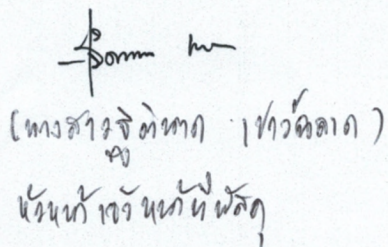 (นางสาวฐิตินาถ เชาว์ฉลาด)
หัวหน้าเจ้าหน้าที่พัสดุ